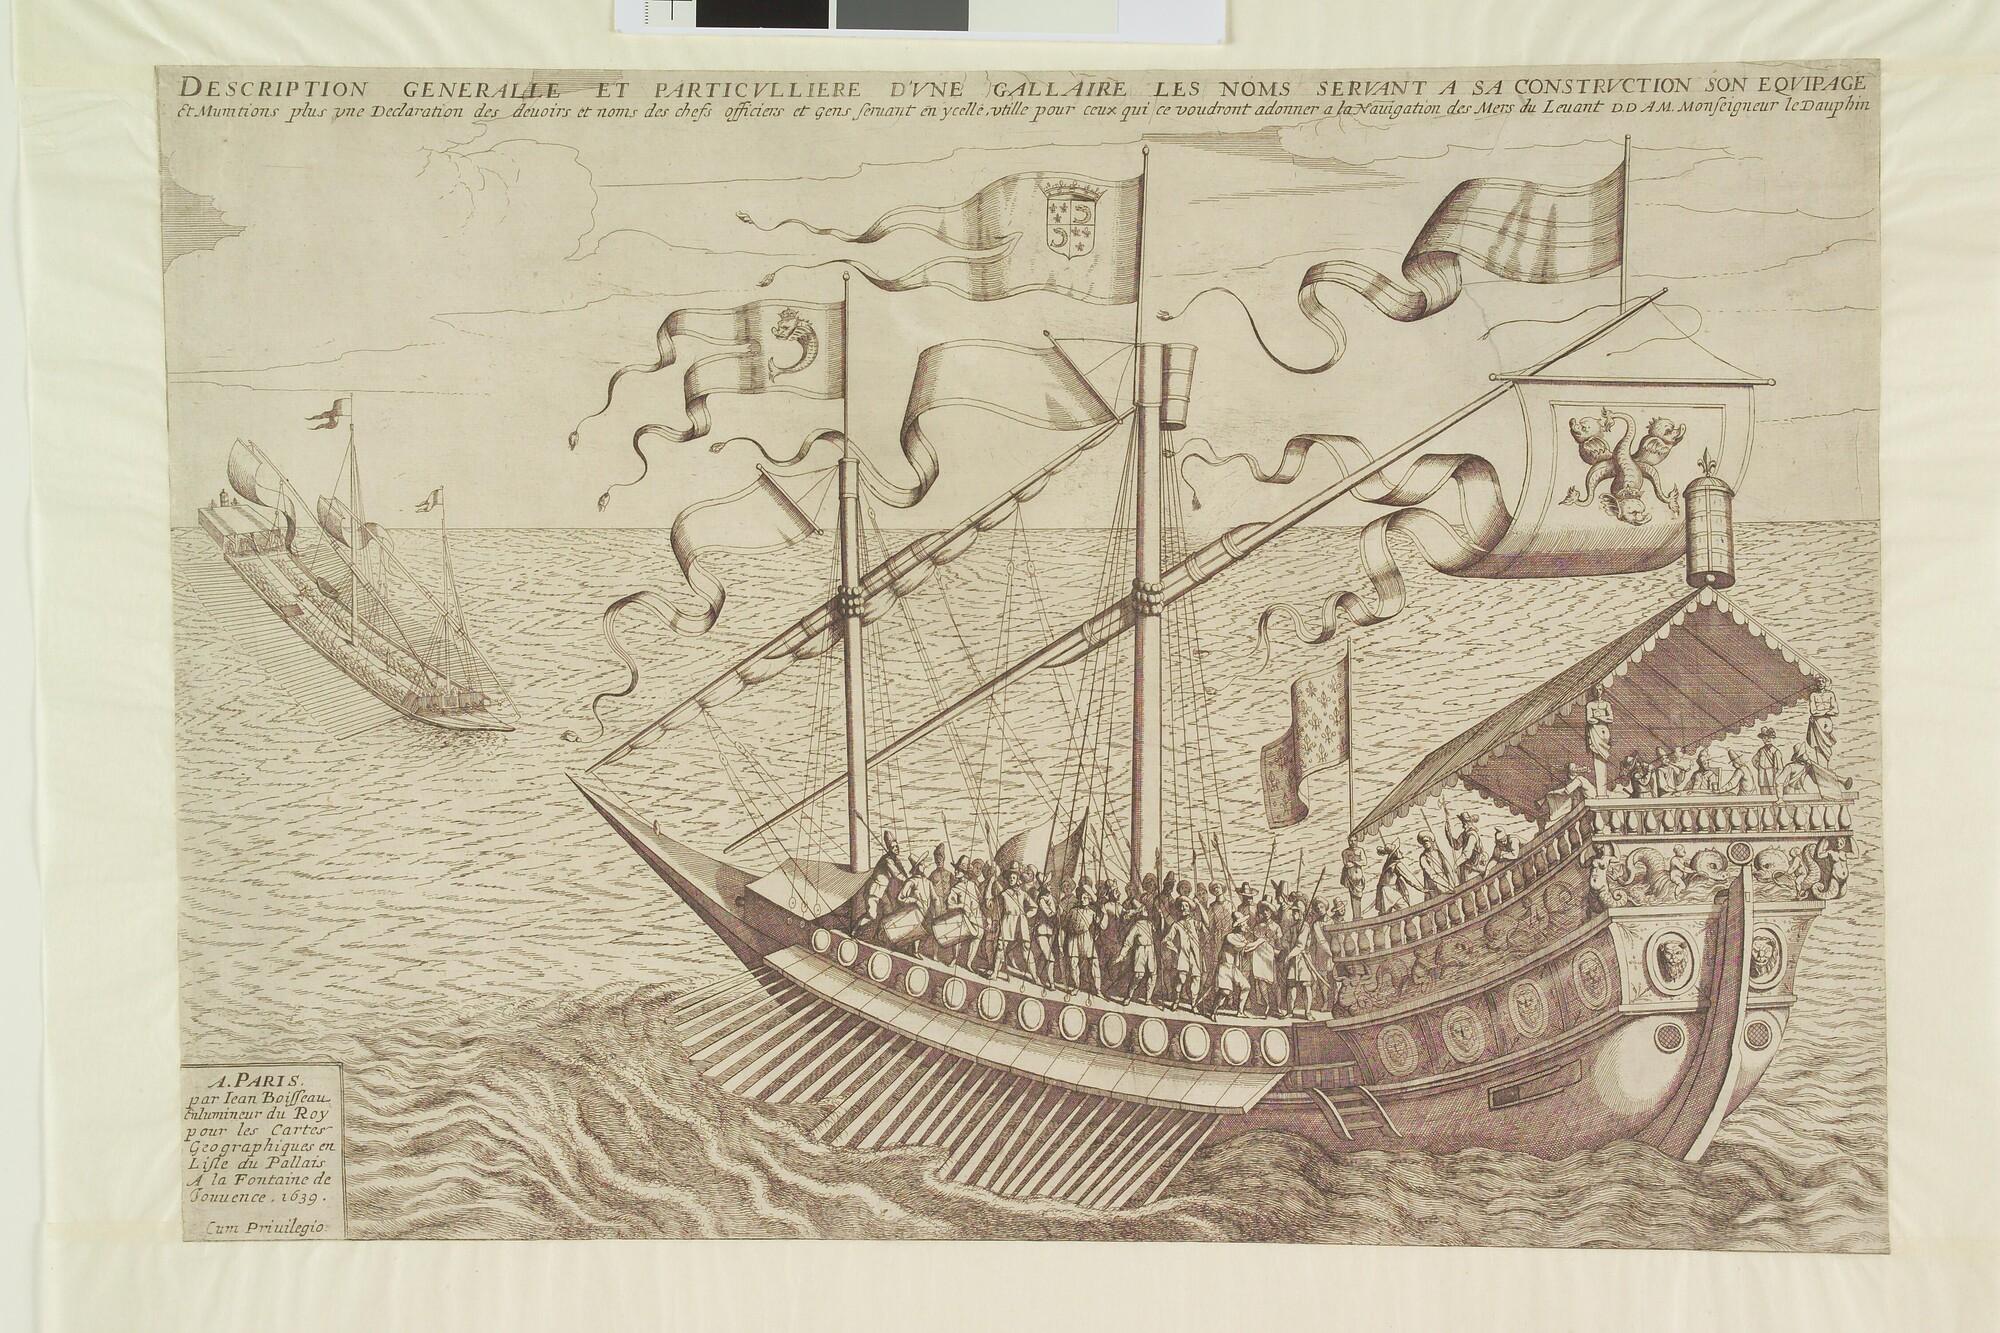 DESCRIPTION GENERALLE ET PARTICVLLIERE D'VNE GALLAIRE LES NOMS SERVANT A SA CONSTRVCTION SON EQVIPAGE
et Munitions plus vne Declaration des deuoirs et noms des chefs officiers et gens seruant en ycelle, vtille pour ceux qui ce voudront adonner a la Nauigation des Mers du Leuant D.D A.M. Monseigneur le Dauphin
A. PARIS.
par Iean Boisseau
Enlumineur du Roy
pour les Cartes
Geographiques en
Lisle du Pallais
A la Fontaine de
Iouuence. 1639.
Cum Priuilegio